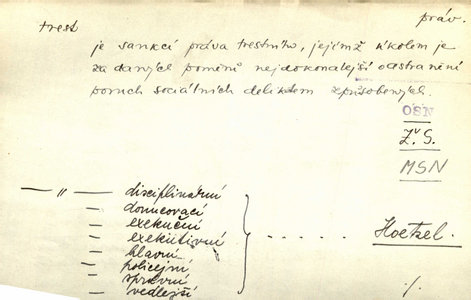 trest práv.
je sankcí práva trestního, jejímž úkolem je
za daných poměrů nejdokonalejší odstranění
poruch sociálních deliktem způsobených.
OSN
Z. S.
MSN
— " — disciplinární
— donucovací
— exekuční
— exekutivní . . . . . Hoetzel.
— hlavní
— policejní
— správní
— vedlejší ./.